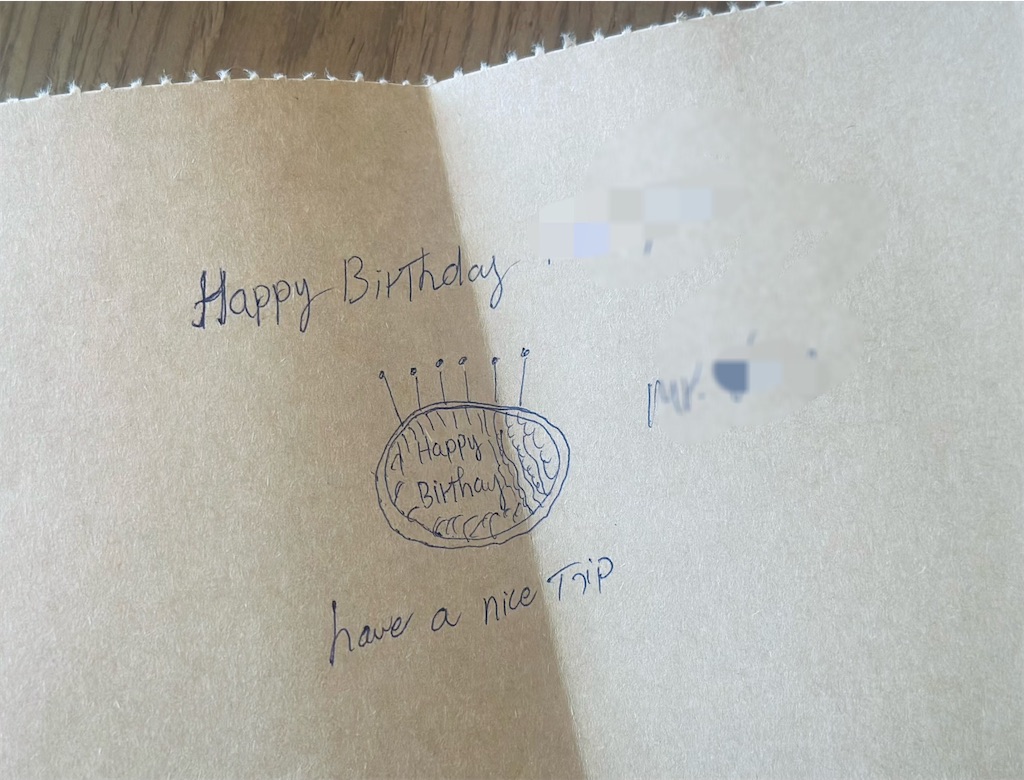 Happy Birthday
Mr.
Happy
Birthay
have a nice Trip